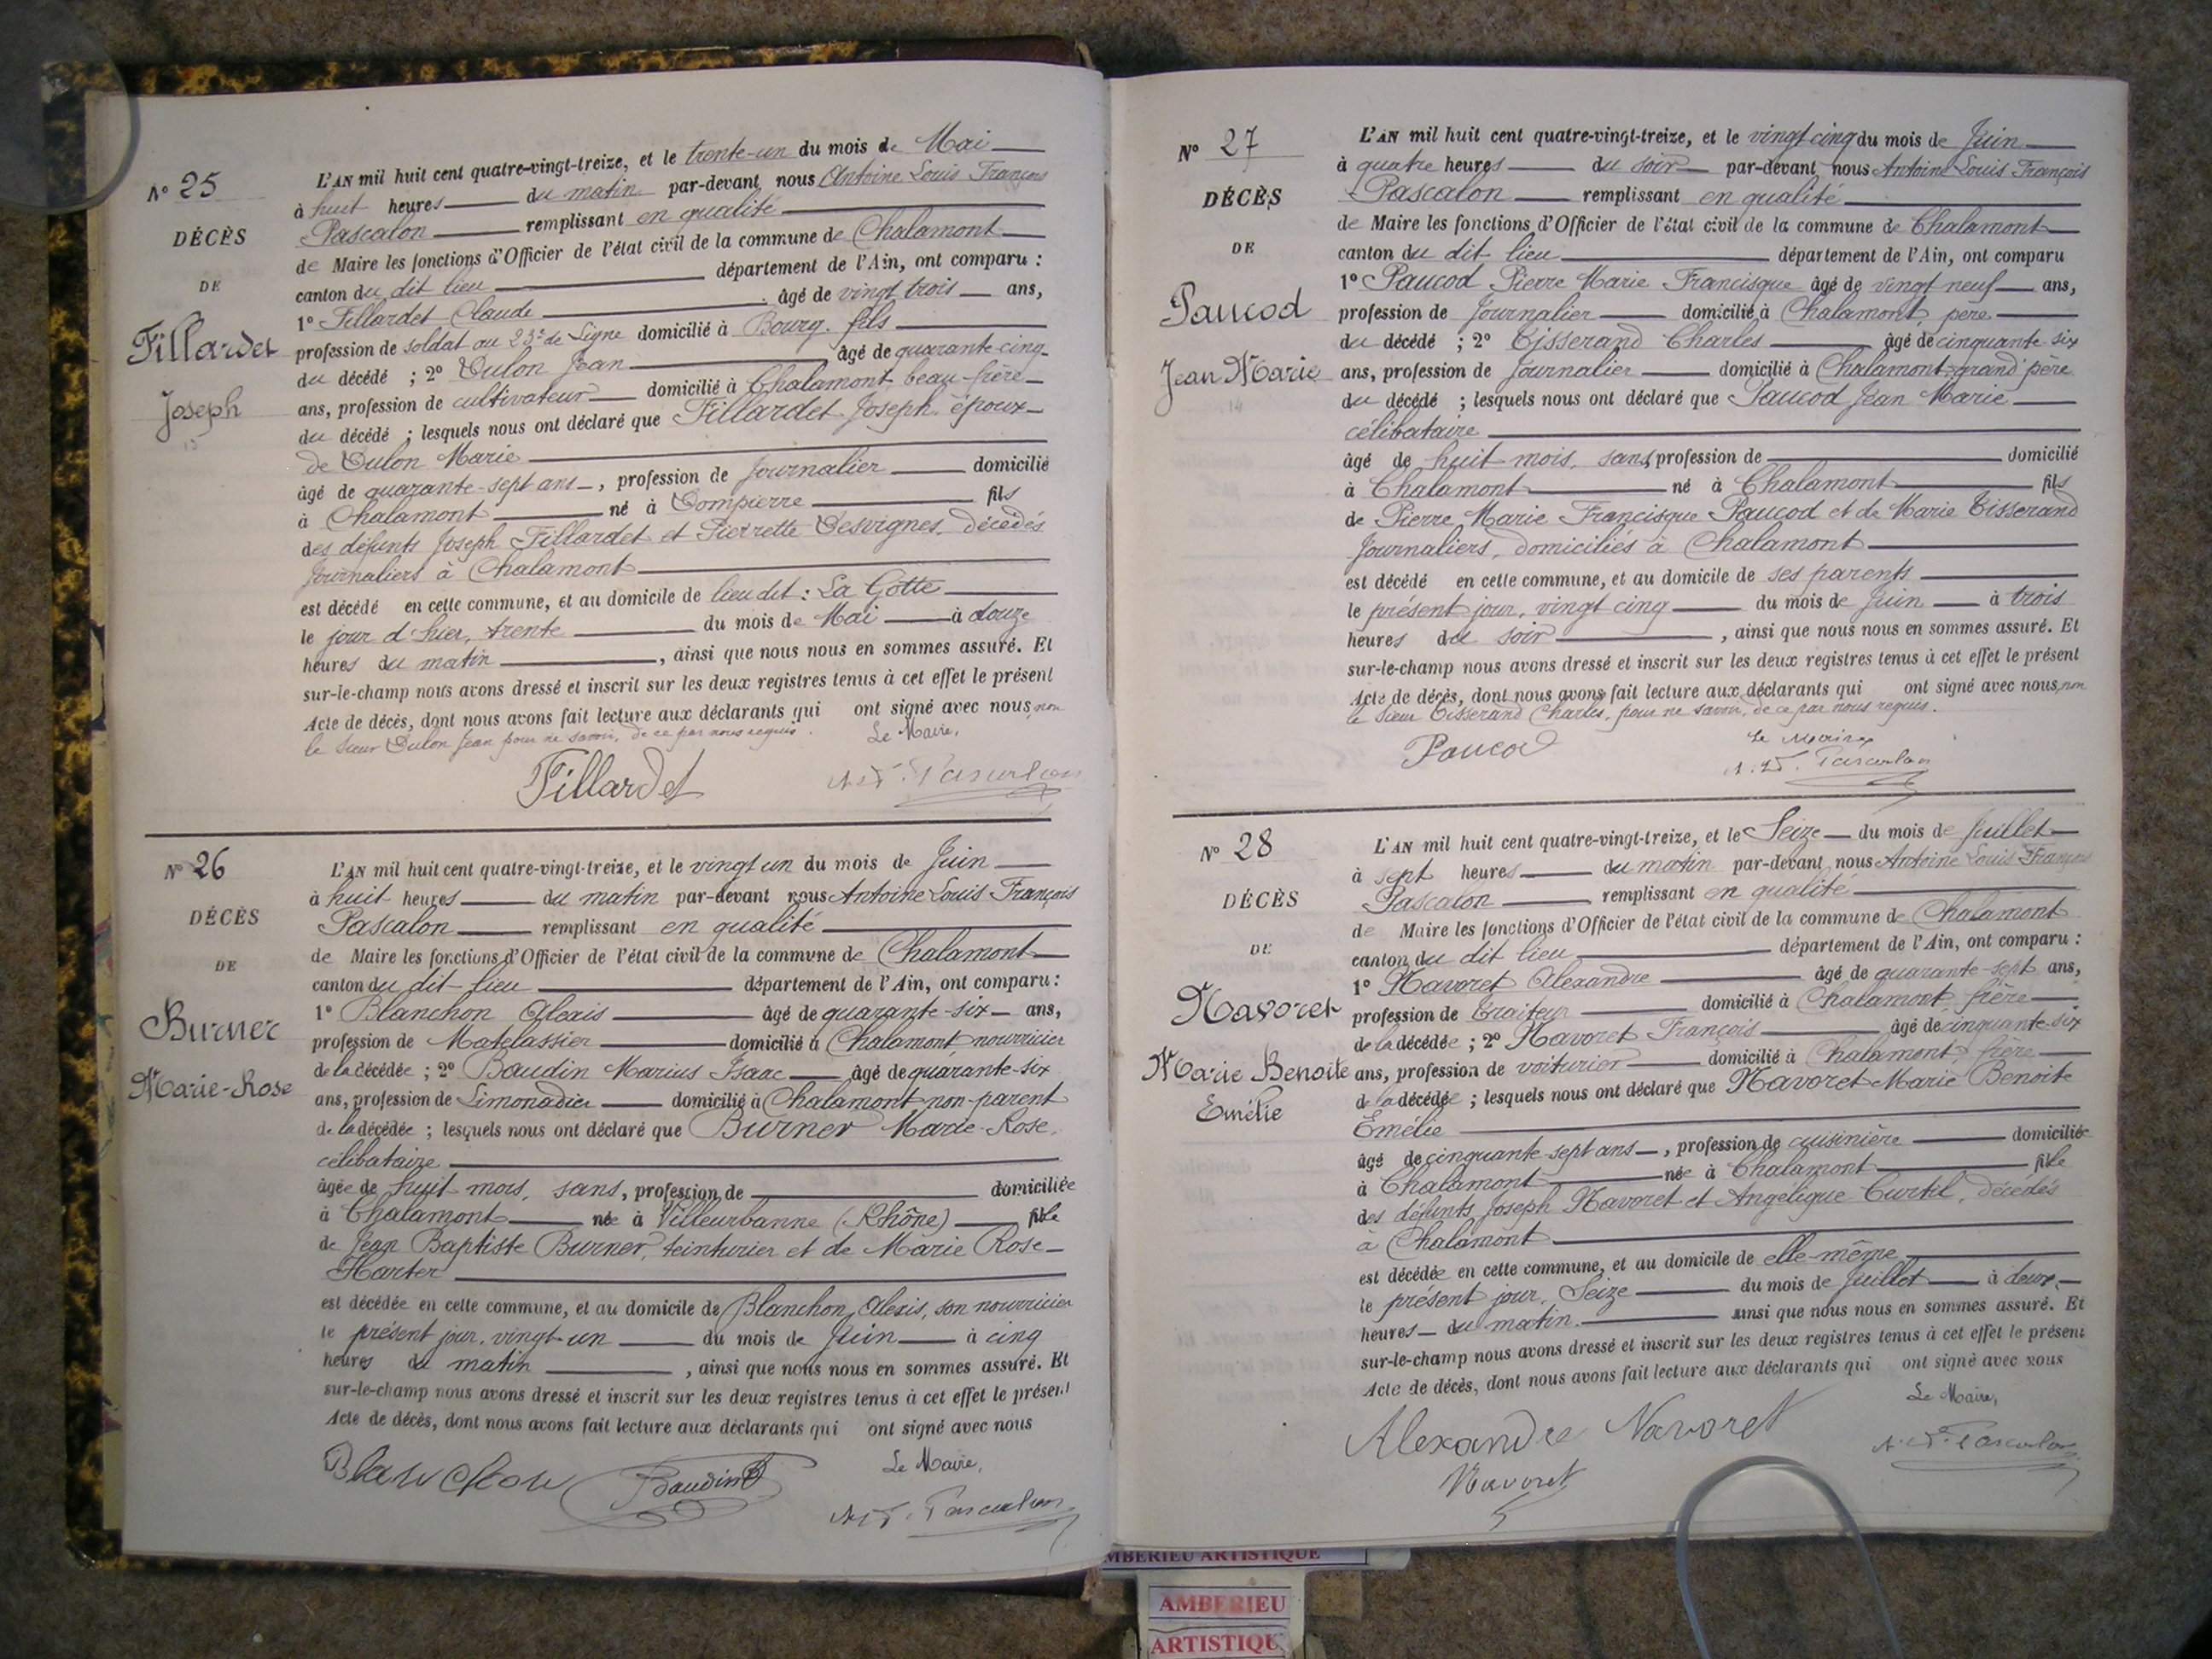 N° 25
DÉCÈS
DE
Fillardet
Joseph
L'AN mil huit cent quatre-vingt-treize, et le trente-un du mois de Mai
à huit heures du matin par-devant nous Antoine Louis François
Pascalon remplissant en qualité
de Maire les fonctions d'Officier de l'état civil de la commune de Chalamont
canton du dit lieu département de l'Ain, ont comparu :
1° Fillardet Claude âgé de vingt trois ans,
profession de soldat au 23e de Ligne domicilié à Bourg. fils
du décédé ; 2° Dulon Jean âgé de quarante-cinq
ans, profession de cultivateur domicilié à Chalamont beau-frère
du décédé ; lesquels nous ont déclaré que Fillardet Joseph époux
de Dulon Marie
âgé de quarante-sept ans, profession de journalier domicilié
à Chalamont né à Dompierre fils
des défunts Joseph Fillardet et Pierrette Desvignes, décédés
journaliers à Chalamont
est décédé en cette commune, et au domicile de lieu dit : La Gotte
le jour d'hier, trente du mois de Mai à douze
heures du matin, ainsi que nous nous en sommes assuré. Et
sur-le-champ nous avons dressé et inscrit sur les deux registres tenus à cet effet le présent
Acte de décès, dont nous avons fait lecture aux déclarants qui ont signé avec nous, non
le sieur Dulon Jean pour ne savoir, de ce par nous requis.
Le Maire,
Fillardet
A. L. F. Pascalon
N° 26
DÉCÈS
DE
Burner
Marie-Rose
L'AN mil huit cent quatre-vingt-treize, et le vingt un du mois de Juin
à huit heures du matin par-devant nous Antoine Louis François
Pascalon remplissant en qualité
de Maire les fonctions d'Officier de l'état civil de la commune de Chalamont
canton du dit-lieu département de l'Ain, ont comparu :
1° Blanchon Alexis âgé de quarante-six ans,
profession de Matelassier domicilié à Chalamont, nourricier
de la décédée ; 2° Baudin Marius Isaac âgé de quarante-six
ans, profession de Limonadier domicilié à Chalamont non-parent
de la décédée ; lesquels nous ont déclaré que Burner Marie-Rose,
célibataire
âgée de huit mois, sans, profession de domiciliée
à Chalamont née à Villeurbanne (Rhône) fille
de Jean Baptiste Burner, teinturier et de Marie Rose
Harter
est décédée en cette commune, et au domicile de Blanchon Alexis, son nourricier
le présent jour, vingt-un du mois de Juin à cinq
heures du matin, ainsi que nous nous en sommes assuré. Et
sur-le-champ nous avons dressé et inscrit sur les deux registres tenus à cet effet le présent
Acte de décès, dont nous avons fait lecture aux déclarants qui ont signé avec nous
Le Maire,
Blanchon Baudin
A. L. F. Pascalon
N° 27
DÉCÈS
DE
Paucod
Jean Marie
14
L'AN mil huit cent quatre-vingt-treize, et le vingt cinq du mois de Juin
à quatre heures du soir par-devant nous Antoine Louis François
Pascalon remplissant en qualité
de Maire les fonctions d'Officier de l'état civil de la commune de Chalamont
canton du dit lieu département de l'Ain, ont comparu
1° Paucod Pierre Marie Francisque âgé de vingt neuf ans,
profession de Journalier domicilié à Chalamont, père
du décédé ; 2° Tisserand Charles âgé de cinquante six
ans, profession de Journalier domicilié à Chalamont, grand'père
du décédé ; lesquels nous ont déclaré que Paucod Jean Marie
célibataire
âgé de huit mois, sans, profession de domicilié
à Chalamont né à Chalamont fils
de Pierre Marie Francisque Paucod et de Marie Tisserand
Journaliers, domiciliés à Chalamont
est décédé en cette commune, et au domicile de ses parents
le présent jour, vingt cinq du mois de Juin à trois
heures du soir, ainsi que nous nous en sommes assuré. Et
sur-le-champ nous avons dressé et inscrit sur les deux registres tenus à cet effet le présent
Acte de décès, dont nous avons fait lecture aux déclarants qui ont signé avec nous, non
le sieur Tisserand Charles, pour ne savoir, de ce par nous requis.
Le Maire
Paucod
A. L. F. Pascalon
N° 28
DÉCÈS
DE
Navoret
Marie Benoite
Emélie
L'AN mil huit cent quatre-vingt-treize, et le Seize du mois de Juillet
à sept heures du matin par-devant nous Antoine Louis François
Pascalon remplissant en qualité
de Maire les fonctions d'Officier de l'état civil de la commune de Chalamont
canton du dit lieu département de l'Ain, ont comparu :
1° Navoret Alexandre âgé de quarante-sept ans,
profession de Traiteur domicilié à Chalamont, frère
de la décédée ; 2° Navoret François âgé de cinquante-six
ans, profession de voiturier domicilié à Chalamont, frère
de la décédée ; lesquels nous ont déclaré que Navoret Marie Benoite
Emélie
âgé de cinquante-sept ans, profession de cuisinière domiciliée
à Chalamont née à Chalamont fille
des défunts Joseph Navoret et Angélique Curtil, décédés
à Chalamont
est décédée en cette commune, et au domicile de elle-même
le présent jour, Seize du mois de Juillet à deux
heures du matin. ainsi que nous nous en sommes assuré. Et
sur-le-champ nous avons dressé et inscrit sur les deux registres tenus à cet effet le présent
Acte de décès, dont nous avons fait lecture aux déclarants qui ont signé avec nous
Le Maire,
Alexandre Navoret
A. L. F. Pascalon
Navoret
AMBERIEU ARTISTIQUE
AMBERIEU
ARTISTIQU